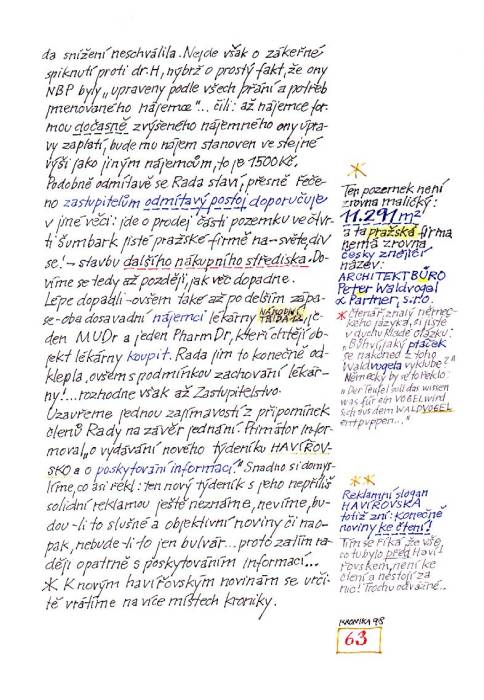 da snížení neschválila. Nejde však o zákeřné
spiknutí proti dr. H, nýbrž o prostý fakt, že ony
NBP byly „upraveny podle všech přání a potřeb
jmenovaného nájemce"... čili: až nájemce for-
mou dočasně zvýšeného nájemného ony úpra-
vy zaplatí, bude mu nájem stanoven ve stejné
výši jako jiným nájemcům, to je 1500 Kč.
Podobně odmítavě se Rada staví, přesně řeče-
no zastupitelům odmítavý postoj doporučuje
v jiné věci: jde o prodej části pozemku ve čtvr-
ti Šumbark jisté pražské firmě na – světe, div
se! – stavbu dalšího nákupního střediska. Do-
víme se tedy až později, jak věc dopadne.
Lépe dopadli – ovšem také až po delším zápa-
se – oba dosavadní nájemci lékárny NÁRODNÍ TŘÍDA 12, je-
den MUDr a jeden PharmDr, kteří chtějí ob-
jekt lékárny koupit. Rada jim to konečně od-
klepla, ovšem s podmínkou zachování lékár-
ny!... rozhodne však až Zastupitelstvo.
Uzavřeme jednou zajímavostí z připomínek
členů Rady na závěr jednání. Primátor infor-
moval „o vydávání nového týdeníku HAVÍŘOV-
SKO a o poskytování informací." Snadno si domys-
líme, co asi řekl: ten nový týdeník s jeho nepříliš
solidní reklamou ještě neznáme, nevíme, bu-
dou-li to slušné a objektivní noviny či nao-
pak, nebude-li to jen bulvár... proto zatím ra-
ději opatrně s poskytováním informací...
* K novým havířovským novinám se urči-
tě vrátíme na více místech kroniky.
*
Ten pozemek není
zrovna maličký:
11.291 m²
a ta pražská firma
nemá zrovna
česky znějící
název:
ARCHITEKTBÜRO
Peter Waldvogel
& Partner, s.r.o.
* čtenář, znalý němec-
kého jazyka, si jistě
v duchu klade otázku:
„Bůhví, jaký ptáček
se nakonec z toho
Waldvogela vyklube?"
Německy by se to řeklo:
„Der Teufel will das wissen
was für ein VOGEL wird
sich aus dem WALDVOGEL
entpuppen..."
**
Reklamní slogan
HAVÍŘOVSKA
totiž zní: Konečně
noviny ke čtení!
Tím se říká, že vše,
co tu bylo před Haví-
řovskem, není ke
čtení a nestojí za
nic! Trochu odvážné...
KRONIKA 98
63